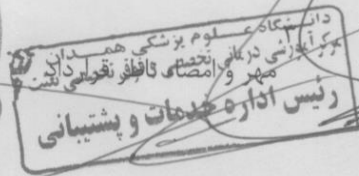 دانشگاه علوم پزشکی همدان
مرکز آموزشی درمانی تخصصی
مهر و امضای ناظر قرارداد
رئیس اداره خدمات و پشتیبانی